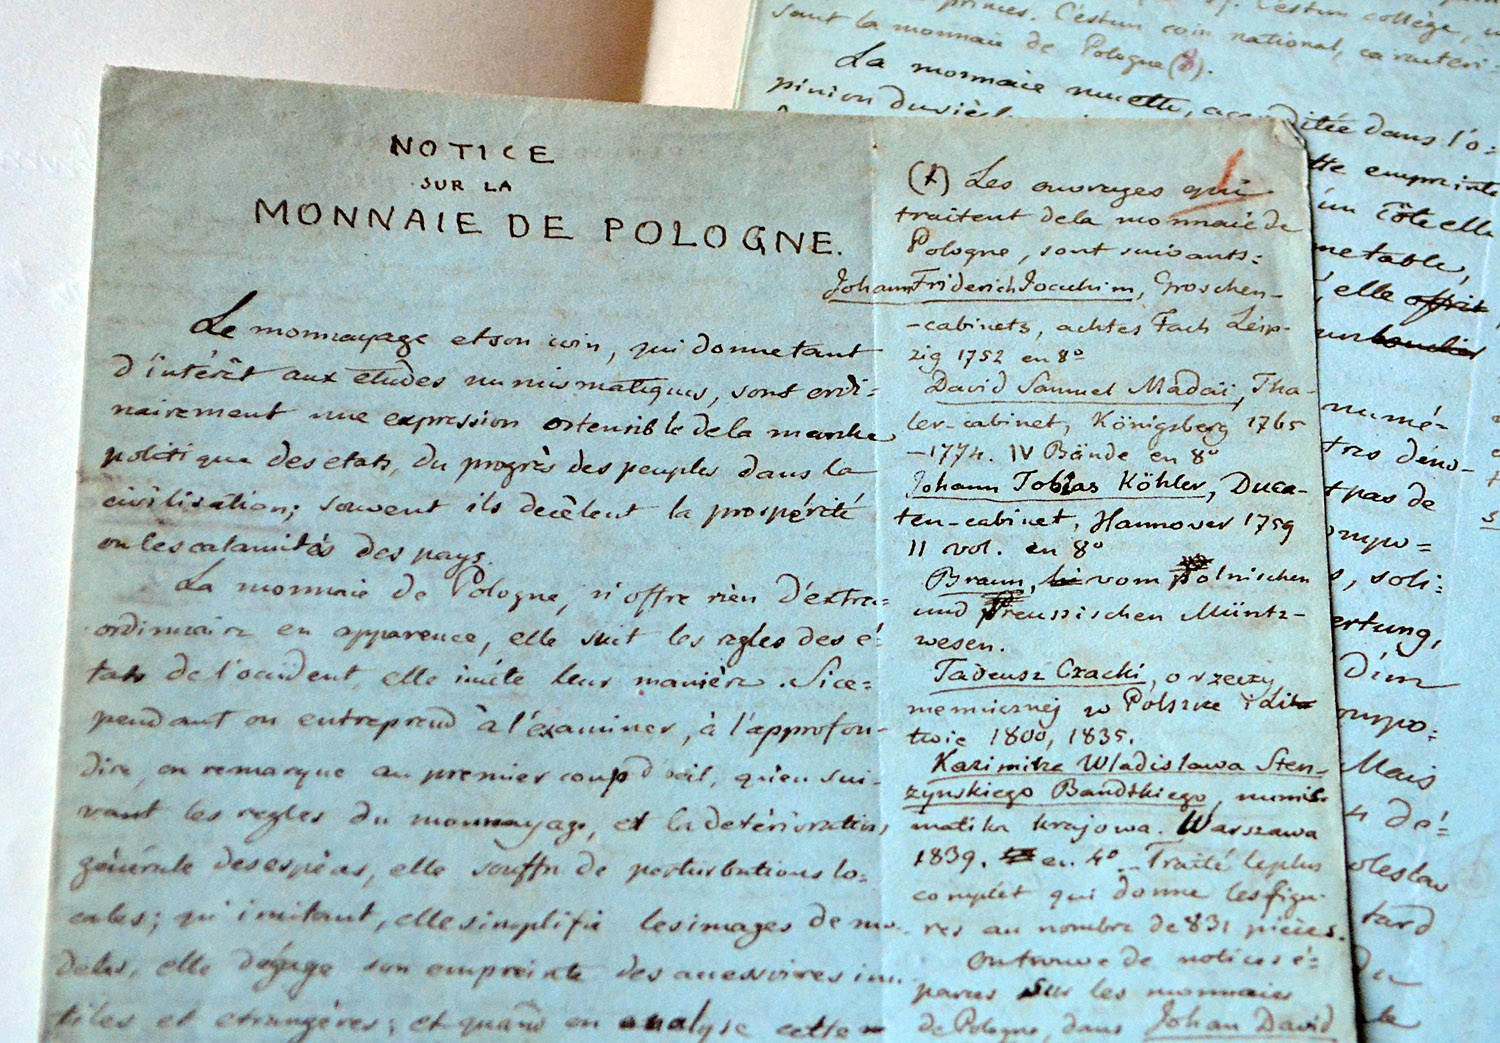 NOTICE
SUR LA
MONNAIE DE POLOGNE.
Le monnayage et son coin, qui donne tant
d'intérêt aux études numismatiques, sont ordi=
nairement une expression ostensible de la marche
politique des etats, du progrès des peuples dans la
civilisation; souvent ils decèlent la prospérité
ou les calamités des pays.
La monnaie de Pologne, n'offre rien d'extra=
ordinnaire en apparence, elle suit les regles des é=
tats de l'occident, elle imite leur manière. Si ce=
pendant on entreprend à l'examiner, à l'approfon-
dir, on remarque au premier coup d'oeil, qu'en sui-
vant les regles du monnayage, et la detérioration,
générale des espèces, elle souffre de perturbations lo=
cales; qu'imitant, elle simplifie les images de mo-
deles, elle dégage son empreinte des accessoires inu
tiles et etrangères; et quand on analyse cette
(1) Les ouvrages qui
traitent de la monnaie de
Pologne, sont suivants:
Johann Friderich Joachim, Groschen-
-cabinets, achtes Fach Leip-
zig 1752 en 8º
David Samuel Madaï, Tha-
ler-cabinet, Königsberg 1765
-1774. IV Bände en 8º
Johann Tobias Köhler, Duca-
ten-cabinet, Hannover 1759
II vol. en 8º
Braun, vom polnischen
und Preussischen Müntz-
wesen.
Tadeusz Czacki, o rzeczy
mennicznéj w Polszcze i Lit
twie 1800, 1835.
Kazimirza Wladislawa Sten-
zynskiego Bandtkiego, numis-
matika krajowa. Warszawa
1839. en. 4º Traité le plus
complét qui donne les figu-
res au nombre de 831 pièces.
On trouve de notices é=
parses sur les monnaies
de Pologne, dans Johan David
primes. C'est un coin national, caracteri=
sant la monnaie de Pologne (8).
La monnaie muette, accreditée dans l'o=
pinion du siècl
tte empreinte
un côté elle
metable,
elle offrit
bouclier
numé-
tres déno-
t pas de
ompo=
s, soli=
ertung,
d'un
ompo=
Mais
dé=
oleslav
tard
du
le